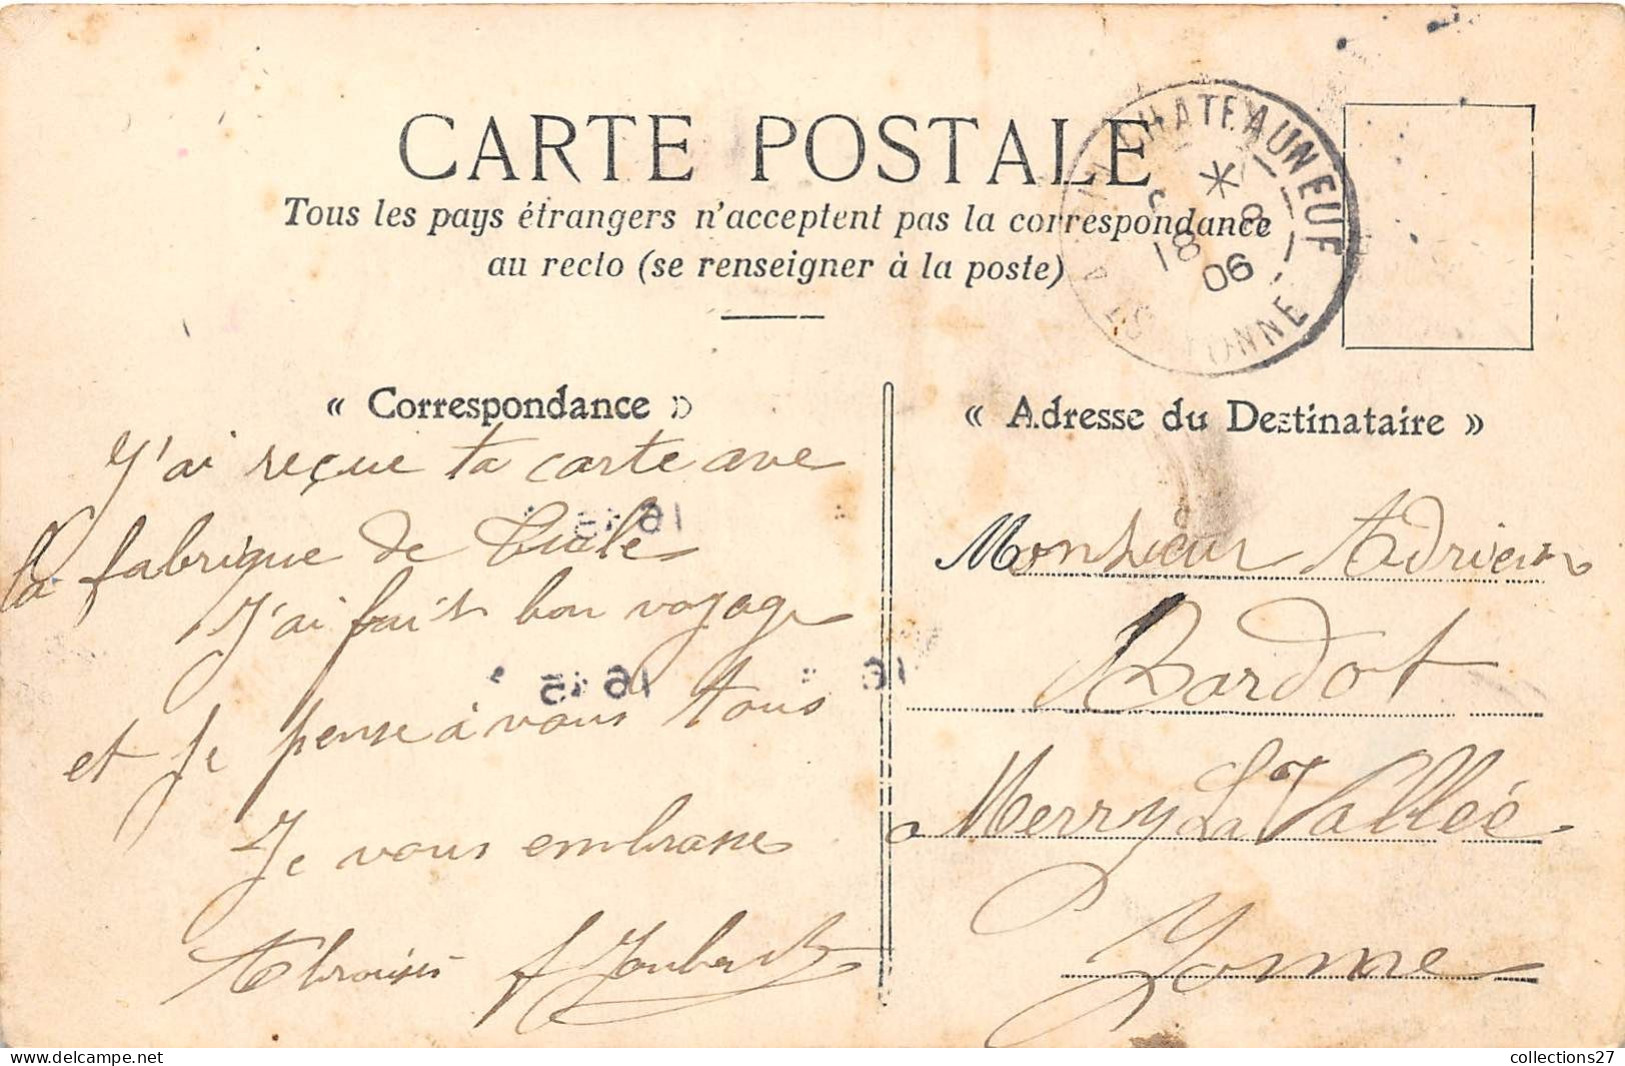 CARTE POSTALE
Tous les pays étrangers n'acceptent pas la correspondance
au recto (se renseigner à la poste)
CHATEAUNEUF
18 8
06
YONNE
« Correspondance »
J'ai reçue ta carte ave
la fabrique de Tuile
J'ai fait bon voyage
et je pense à vous tous
Je vous embrasse
Joubert
« Adresse du Destinataire »
Monsieur Adrien
Bardot
a Merry La Vallée
Yonne
16 15
16 15
16
collections27